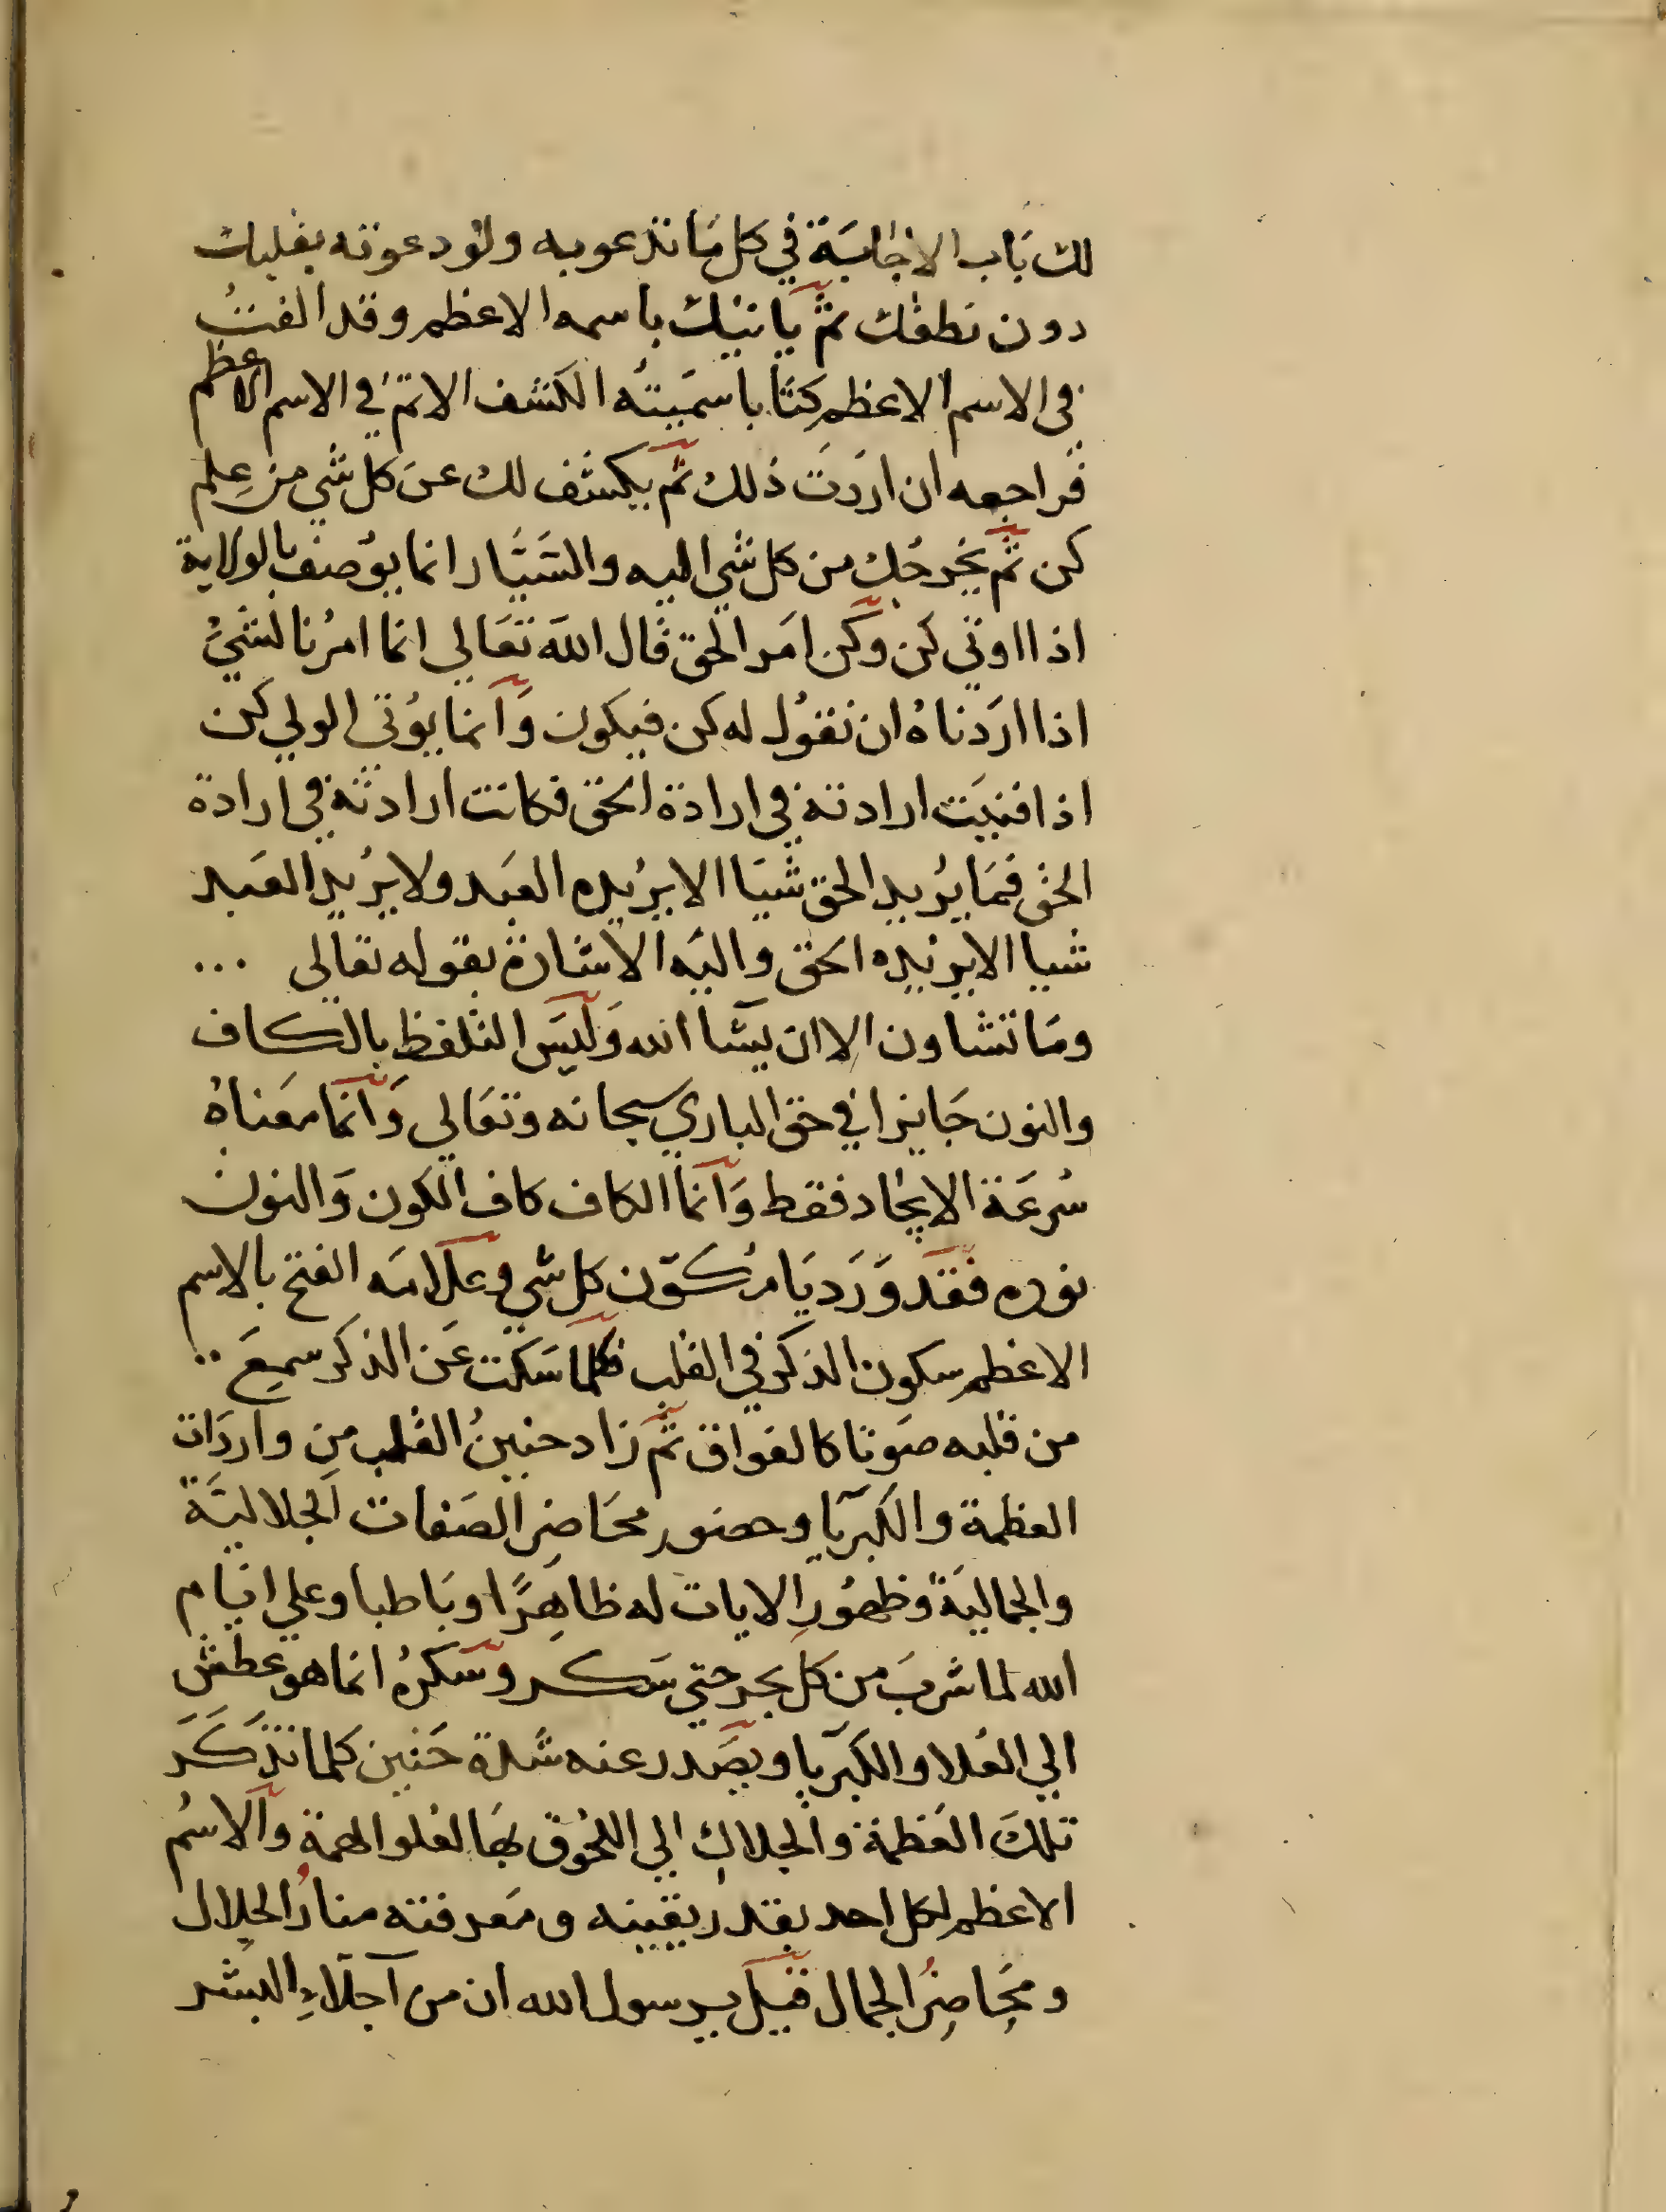 لك بَاب الاجَابَة في كل مَا تدعو به ولو دعوته بقلبك
دون نطقك ثم ياتيك باسمه الاعظم وقد الفتُ
في الاسم الاعظم كتَابا سميتُه الكشف الاتمّ في الاسم الاعظم
فراجعه ان اردَت ذلك ثم يكشف لك عن كل شي من عِلم
كن ثم يخرجُك من كل شي اليه والسَيَّار انما يوُصف بالولاية
اذا اوتي كن وكن امَر الحق قال الله تعَالي انما امرُنا لشيُ
اذا ارَدناهُ ان نقوُل له كن فيكون وَانما يوُتي الولي كن
اذا فنيَت ارادته في ارادة الحق فكانت ارادته في ارادة
الحق فمَا يرُيد الحق شيَا الا يرُيده العَبد ولا يرُيد العَبد
شيا الا يريده الحق واليَه الاشارة بقوله تعالى ...
ومَا تشاون الا ان يشَآ الله وَليَس التلفظ بالكاف
والنون جَايزا في حق الباري سبحانه وتعَالي وَانمَا معَناهُ
سُرعَة الايجَاد فقط وَانما الكاف كاف الكون وَالنون
نوره فقَد وَرَد يَا مُكَوّن كل شي وعَلامَه الفتح بالاسم
الاعظم سكون الذكر في القلب فكلمَا سَكت عَن الذكر سمِعَ ..
من قلبه صَوتا كالفواق ثم زاد حنينُ القلب من واردَات
العظمة والكبريَآ وحضور محَاضِر الصَفات الجلاليَّة
والجمالية وظهوُر الايات له ظاهِرًا وبَاطنا وعلي ايَام
الله لما شربَ من كل بحر حتي سَكر وسَكرهُ انما هو عطش
الي العُلا والكبريآ ويصَدر عنه شدة حَنين كلما تذَكَرَ
تلكَ العَظمة والجلال الي اللحُوق بهَا لعُلو الهمة وَالاسُم
الاعظم لكل احد بقدر يقينه ومَعرفته منارُ الجلال
ومحَاضِرُ الجمال فقيل يرسول الله ان من آجلآءِ البشر